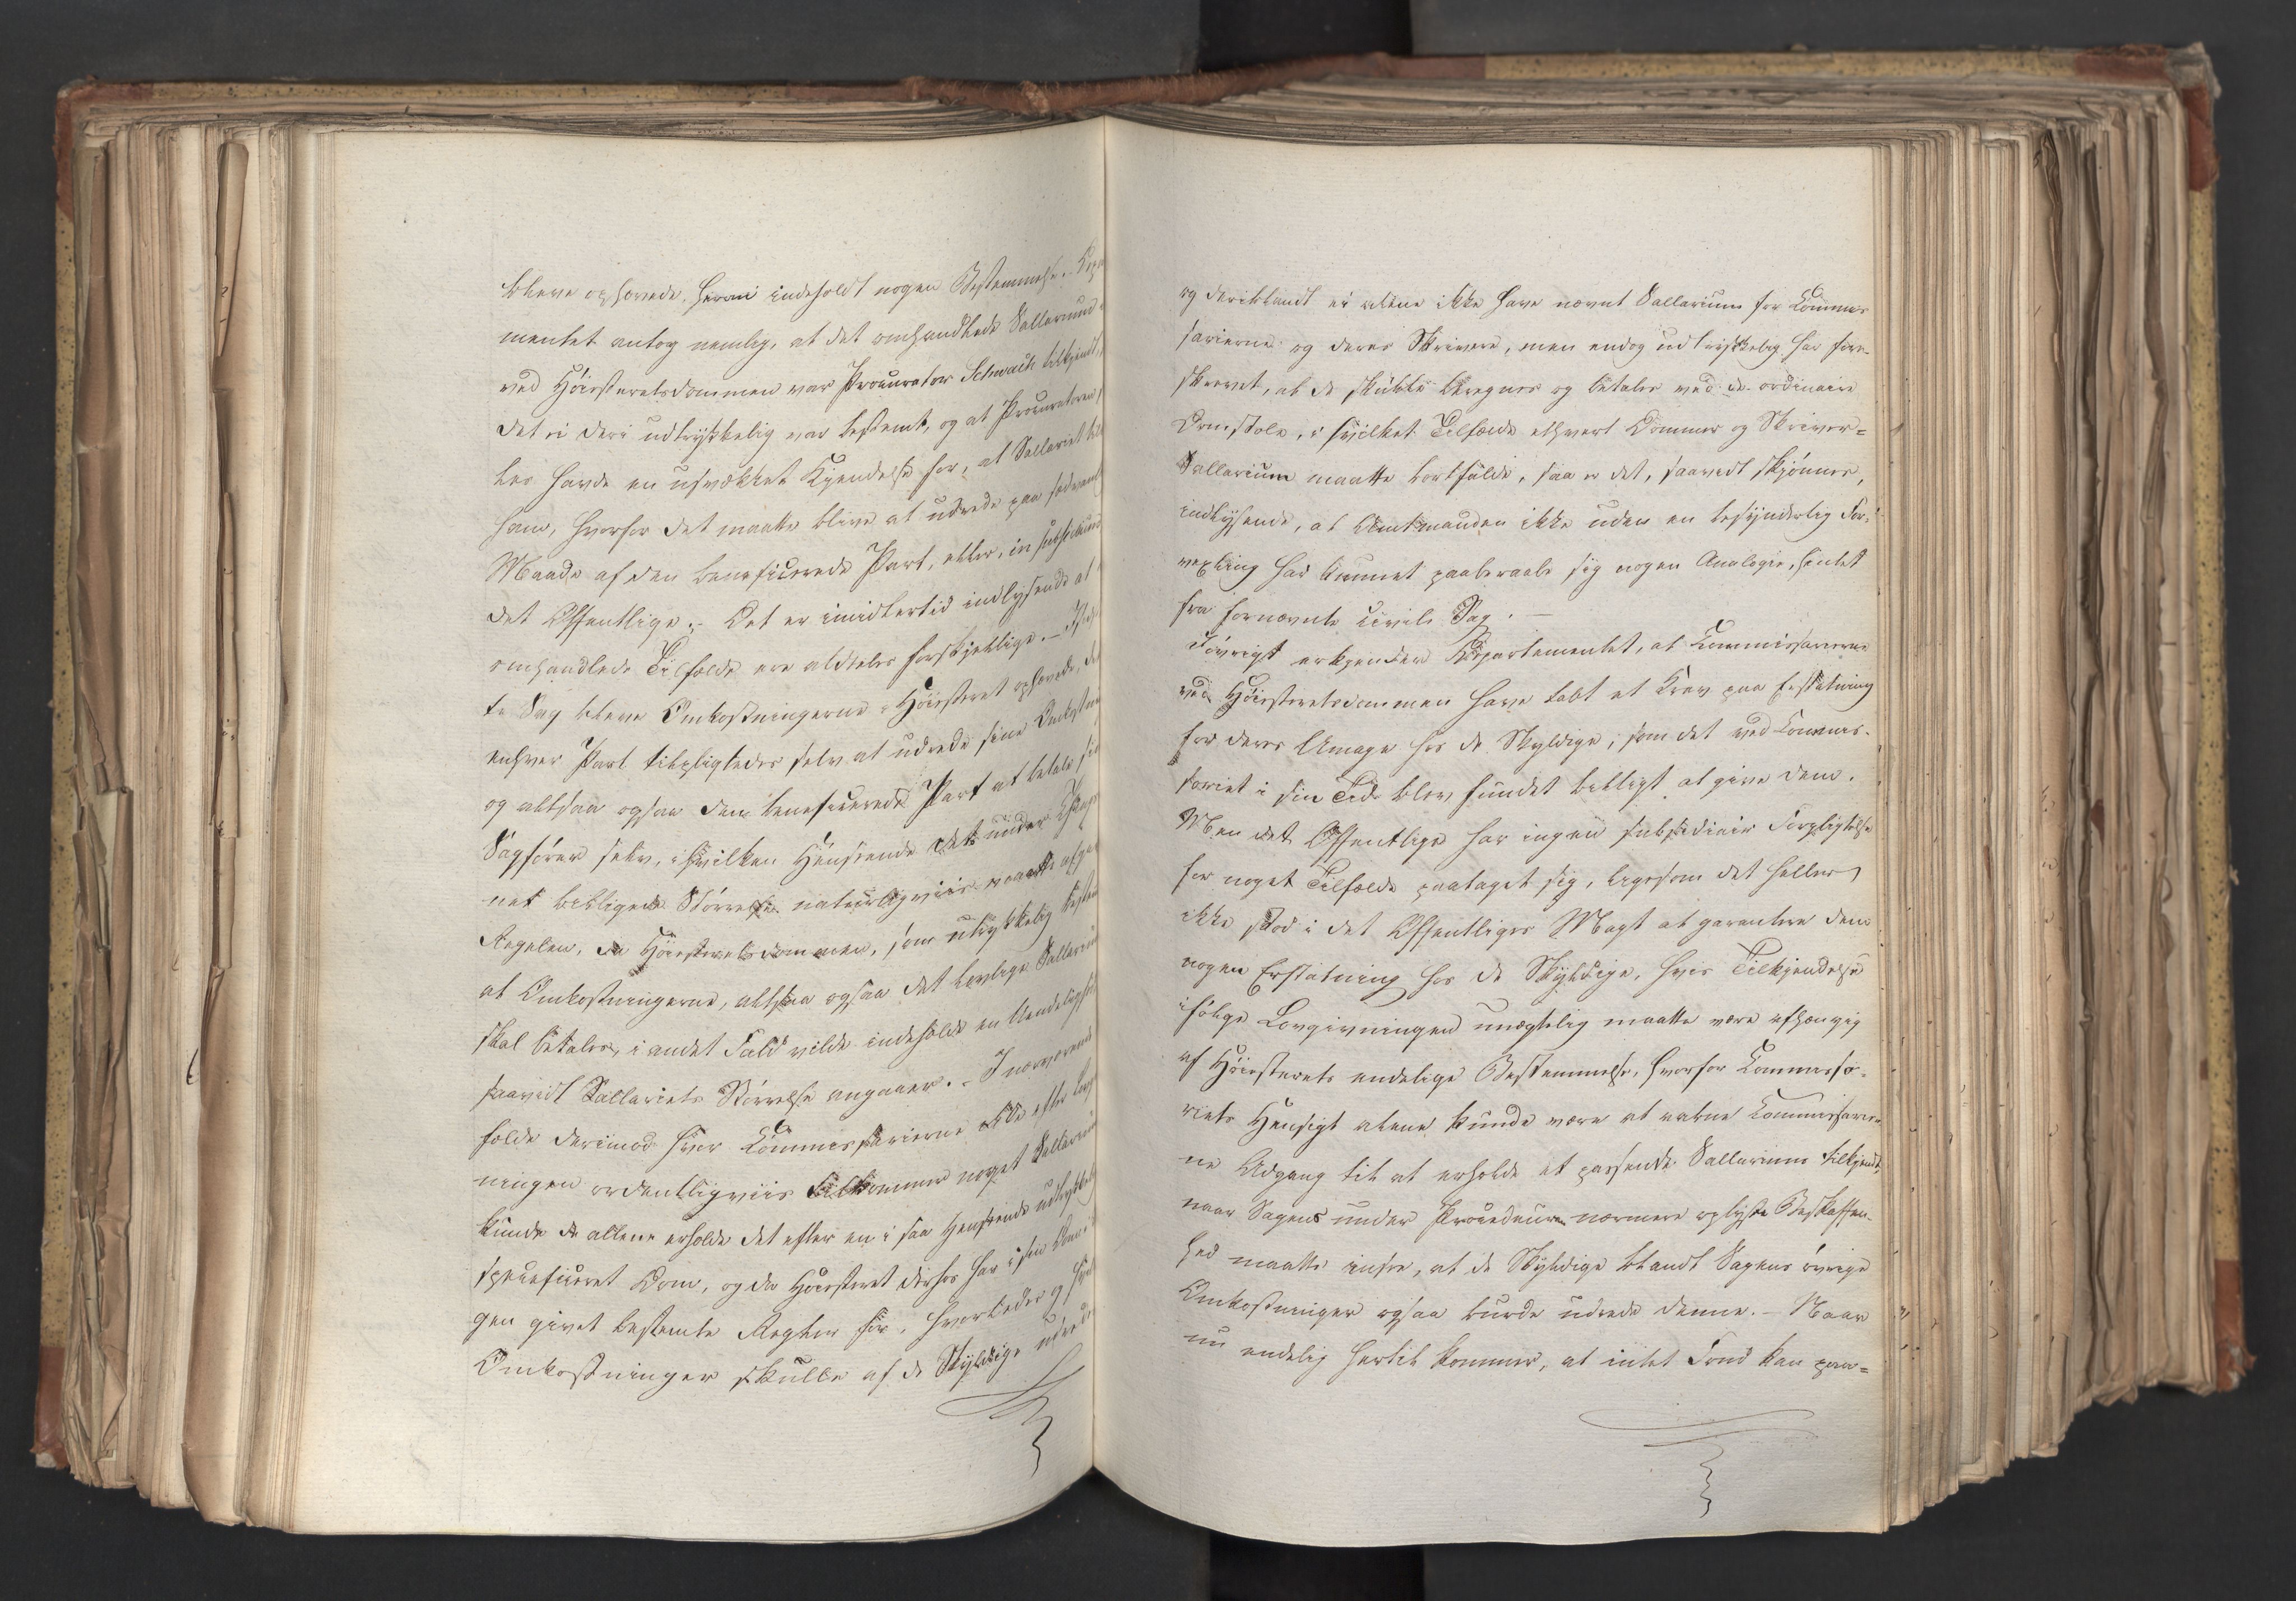 bleve ophævede, herom indeholdt nogen Bestemmelse. Depar
mentet antog nemlig, at det omhandlede Sallarium ei
ved Höiesteretsdommen var Procurator Schwach tilkjendt,
det ei deri udtrykkelig var bestemt, og at Procuratoren
ler havde en usvækket Kjendelse for, at Sallariet til
ham, hvorfor det maatte blive at udrede paa sædvanlig
Maade af den beneficerede Part, eller, in subsidium
det Offentlige. Det er imidlertid indlysende at
omhandlede Tilfælde ere aldeles forskjellige. – I hiin
te Sag bleve Omkostningerne i Höiesteret ophævede, det
enhver Part tilpligtedes selv at udrede sine Omkostnin
og altsaa ogsaa den beneficerede Part at betale sin
Sagförer selv, i hvilken Henseende det under
net billigede Störrelse naturligviis maatte afgive
Regelen, da Höiesteretsdommen, som udtrykkelig bestem
at Omkostningerne, altsaa ogsaa det lovlige Sallarium
skal betales, i andet Fald vilde indeholde en Uendelighed
saavidt Sallariets Störrelse angaaer. – I nærværende
fælde derimod hvor Commissarierne ikke efter Lovgiv
ningen ordentligviis tilkommer noget Sallarium
kunde de allene erholde det efter en i saa Henseende udtrykkelig
specificeret Dom, og da Höiesteret derhos har i sin Dom i
gen givet bestemte Regler for, hvorledes og hvilke
Omkostninger skulle af de Skyldige udredes
og deriblandt ei alene ikke have nævnt Sallarium for Commis
sarierne og deres Skrivere, men endog udtrykkelig har fore-
skrevet, at de skulle beregnes og betales ved de ordinaire
Domstole, i hvilket Tilfælde ethvert Dommer og Skriver-
Sallarium maatte bortfalde, saa er det, saavidt skjönnes,
indlysende, at Amtmanden ikke uden en besynderlig For-
vexling har kunnet paaberaabe sig nogen Analogie, hentet
fra fornævnte civile Sag. –
Iövrigt erkjender Departementet, at Commissarierne
ved Höiesteretsdommen have tabt et Krav paa Erstatning
for deres Umage hos de Skyldige, som det ved Commis-
soriet i sin Tid blev fundet billigt at give dem.
Men det Offentlige har ingen subsidiair Forpligtelse
for noget Tilfælde paataget sig, ligesom det heller
ikke stod i det Offentliges Magt at garantere dem
nogen Erstatning hos de Skyldige, hvis Tilkjendelse
ifölge Lovgivningen unægtelig maatte være afhængig
af Höiesterets endelige Bestemmelse, hvorfor Commisso-
riets Hensigt alene kunde være at aabne Commissarier-
ne Adgang til at erholde et passende Sallarium tilkjendt,
naar Sagens under Proceduren nærmere oplyste Beskaffen-
hed maatte ansee, at de Skyldige blandt Sagens övrige
Omkostninger ogsaa burde udrede denne. – Naar
nu endelig hertil kommer, at intet Fond kan paa-